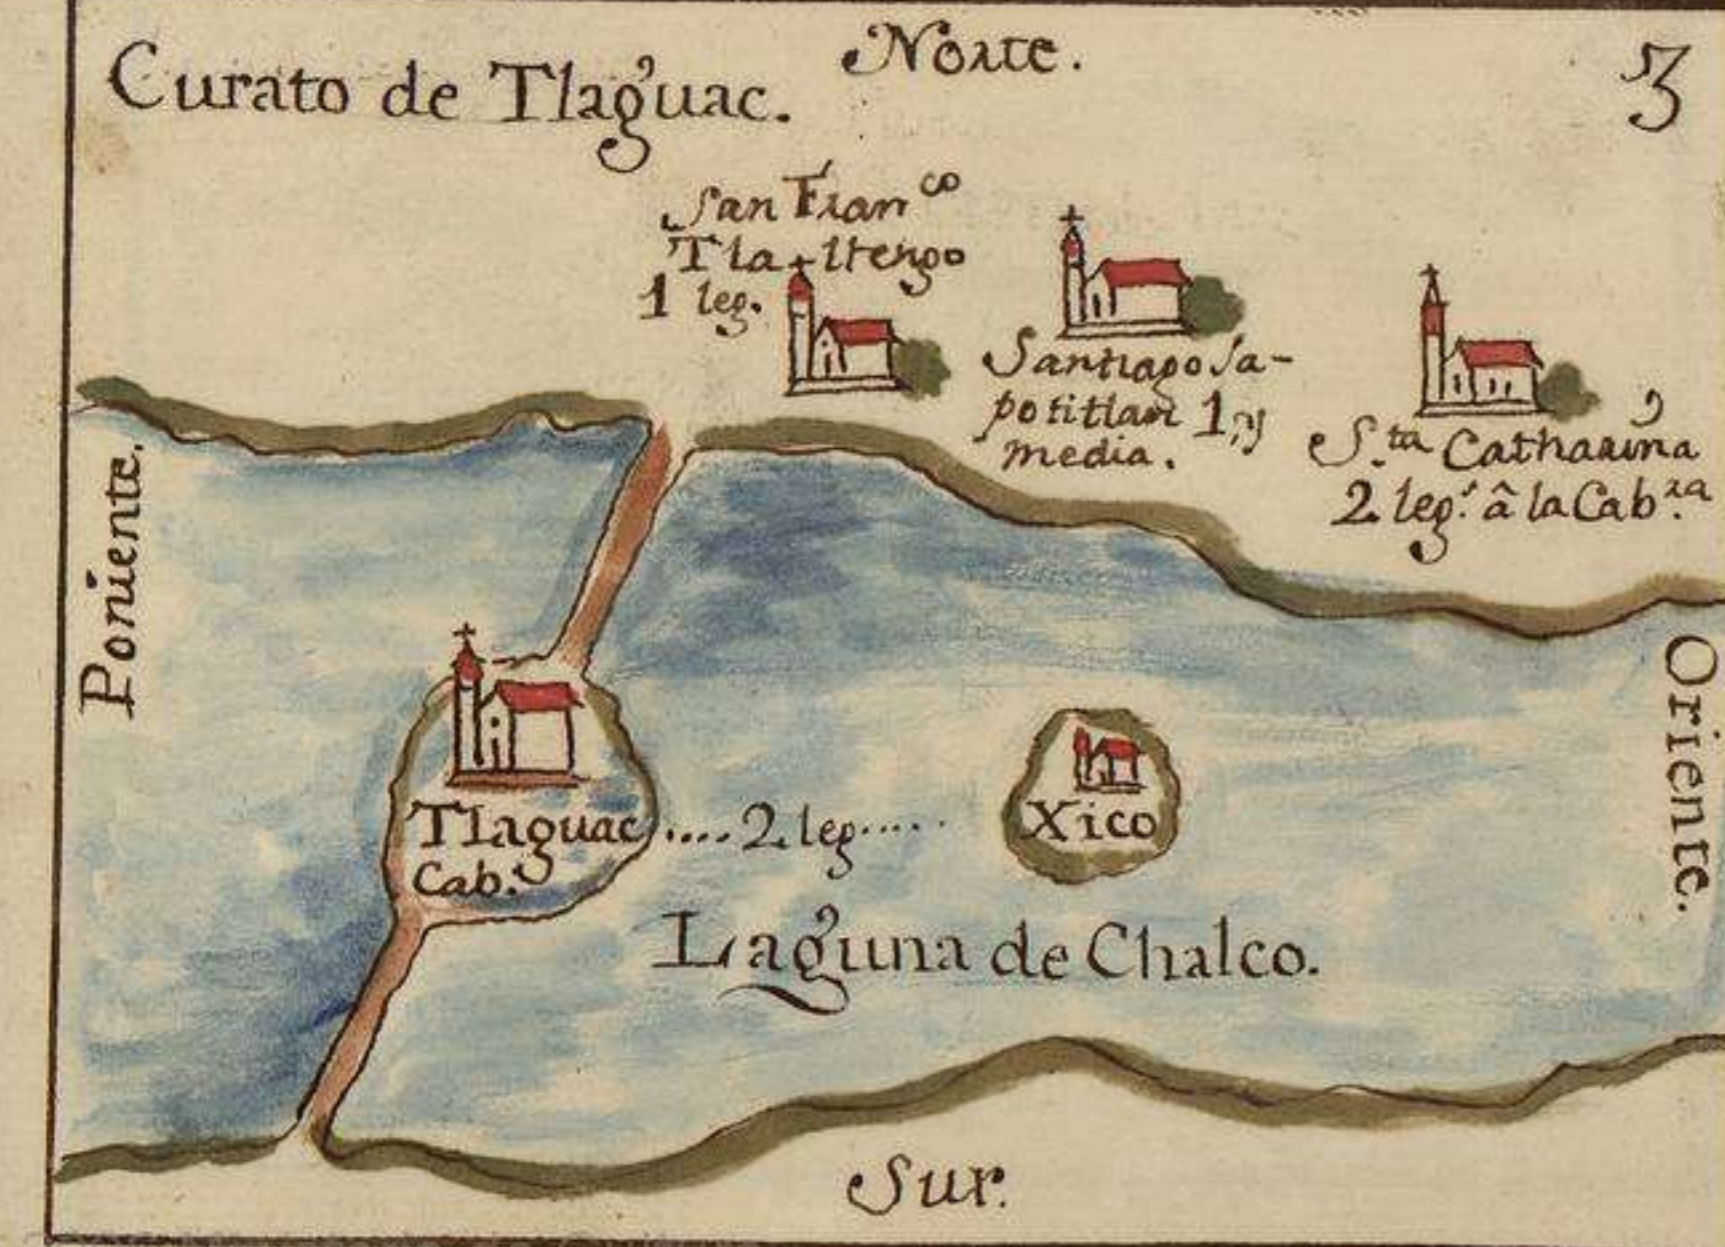 Norte.
Curato de Tlaguac.
3
San Fran^co
Tlaltengo
1 leg.
Santiago Sa-
potitlan 1, y
media.
S.^ta Catharina
2 leg.^s â la Cab.^ra
Poniente.
Oriente.
Tlaguac
Cab.^a
....2 leg.....
Xico
Laguna de Chalco.
Sur.